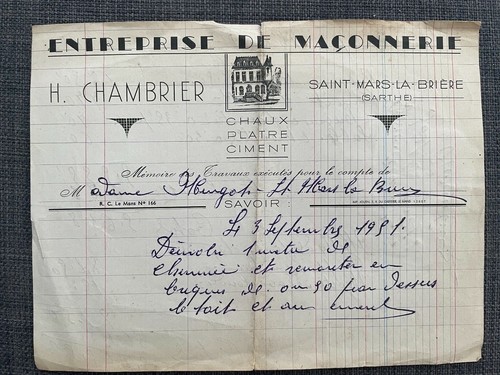 ENTREPRISE DE MAÇONNERIE
H. CHAMBRIER
SAINT-MARS-LA-BRIÈRE
(SARTHE)
CHAUX
PLATRE
CIMENT
Mémoire des Travaux exécutés pour le compte de
Madame St Mars la
R. C. Le Mans Nº 166
SAVOIR :
Le 3 Septembre 1951.
Démoli 1 mètre de
cheminée et remonter en
briques de 0m90 par dessus
le toit et au